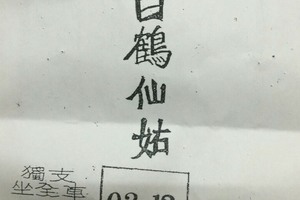 白鶴仙姑
獨支
坐全車